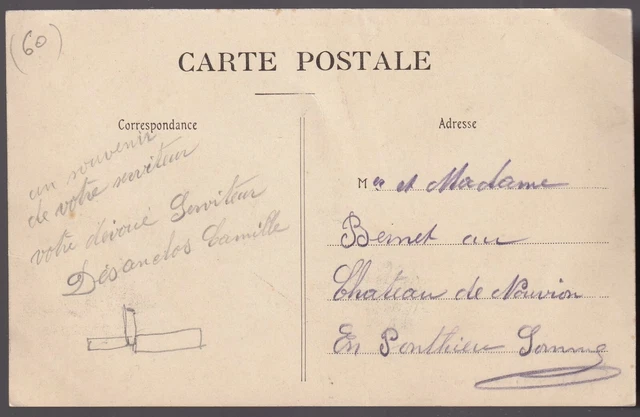 (60)
CARTE POSTALE
Correspondance
un souvenir
de votre serviteur
votre dévoué Serviteur
Désanclos Camille
Adresse
Mr et Madame
Bernet au
Chateau de Nouvion
En Ponthieu Somme